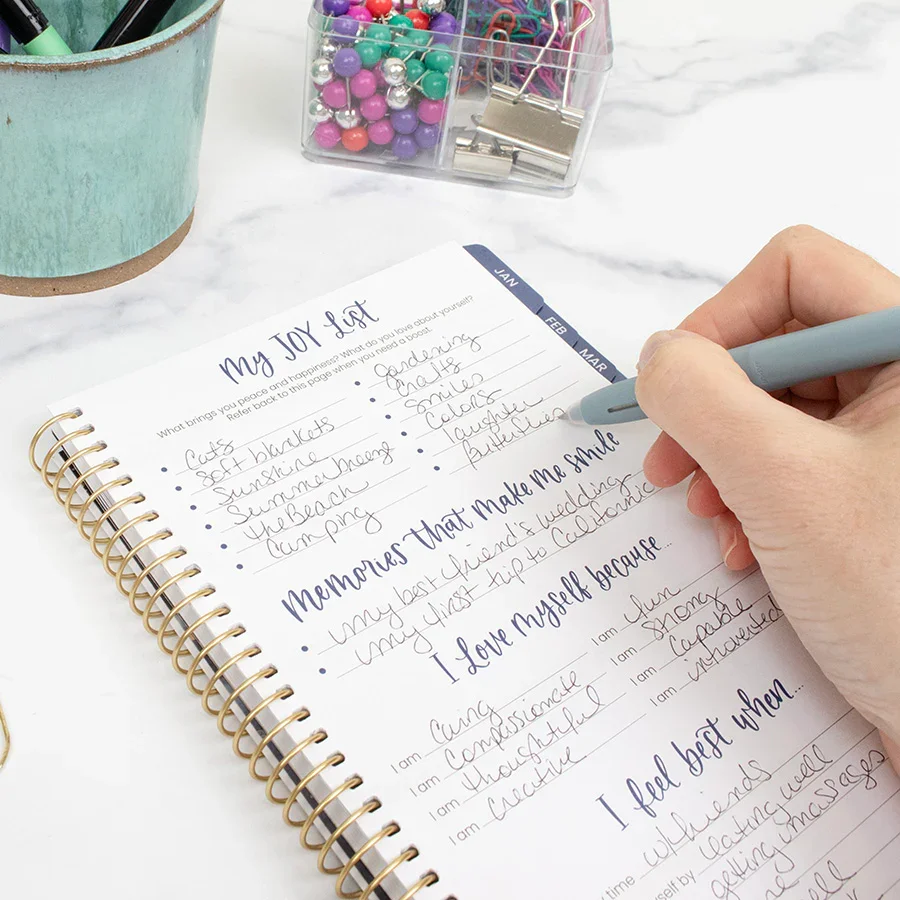 JAN
FEB
MAR
My JOY List
What brings you peace and happiness? What do you love about yourself?
Refer back to this page when you need a boost.
Cats
Soft blankets
Sunshine
Summer breeze
the Beach
Camping
Gardening
Crafts
Smiles
Colors
laughter
Butterflies
Memories that make me smile
my best friend's wedding
my first trip to California
I love myself because...
I am Caring
I am Compassionate
I am thoughtful
I am Creative
I am fun
I am Strong
I am Capable
I am introverted
I feel best when...
time w/ friends
self by eating well
getting massages